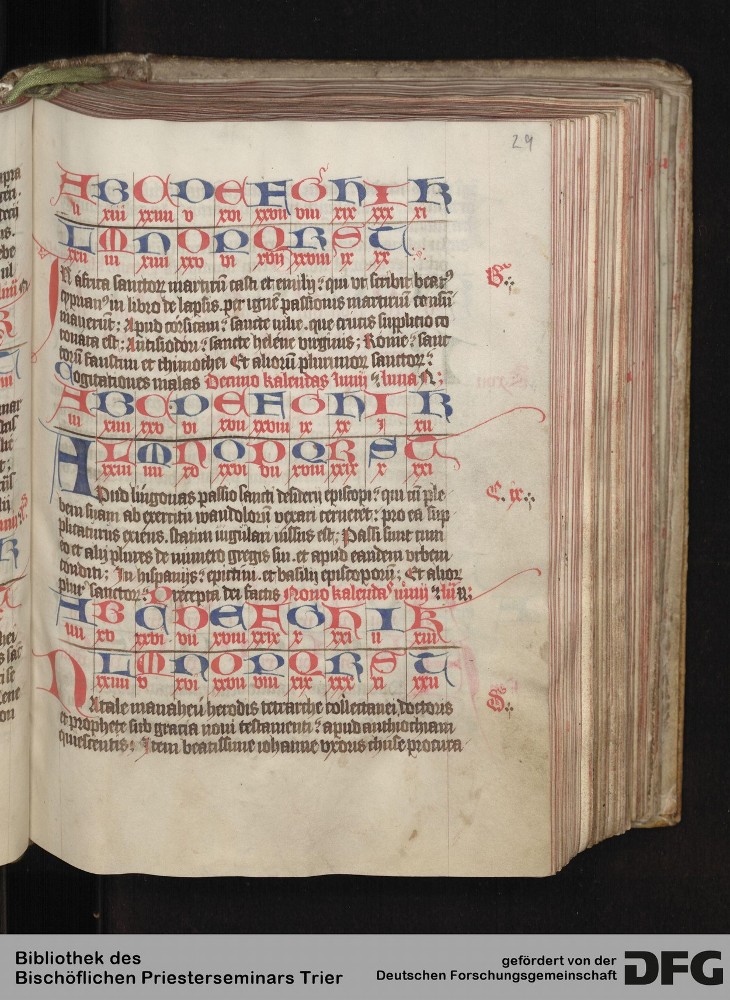 29
A B C D E F G H I K
ii xiii xxiiii v xvi xxvii viii xix xxx xi
L M N O P Q R S T
xxii iii xiiii xxv vi xvij xxviii ix xx
In africa sanctor martirū casti et emilij qui ut scribit beat9
cyprian9 in libro de lapsis per ignē passionis martiriū consū
mauerunt; Apud corsicam sancte iulie que crucis supplicio co
ronata est; Antisiodori sancte helene virginis; Rome sanc
torū faustini et thimothei Et aliorū plurimor sanctor
Cogitationes malas Decimo kalendas iunij luna
A B C D E F G H I K
iii xiiii xxv vi xvii xxviii ix xx i xii
L M N O P Q R S T
xxiii iiii xv xxvi vii xviii xxix x xxi
Apud lingonas passio sancti desiderij episcopi qui cū ple
bem suam ab exercitu wandolorū vexari cerneret pro ea sup
plicaturus exiens statim iugulari iussus est; Passi sunt cum
eo et alij plures de numero gregis sui et apud eandem urbem
conditi; In hispanijs epictini et basilij episcoporū; Et alior
plur sanctor Precepta dei factis Nono kalendas iunij
A B C D E F G H I K
iiii xv xxvi vii xviii xxix x xxi ii xiii
L M N O P Q R S T
xxiiii v xvi xxvii viii xix xxx xi xxii
Natale manaheū herodis tetrarche collectanei doctoris
et prophete sub gracia noui testamenti apud anthiochiam
quiescentis; Item beatissime iohanne uxoris chuse procura
Bibliothek des
Bischöflichen Priesterseminars Trier
gefördert von der
Deutschen Forschungsgemeinschaft
DFG